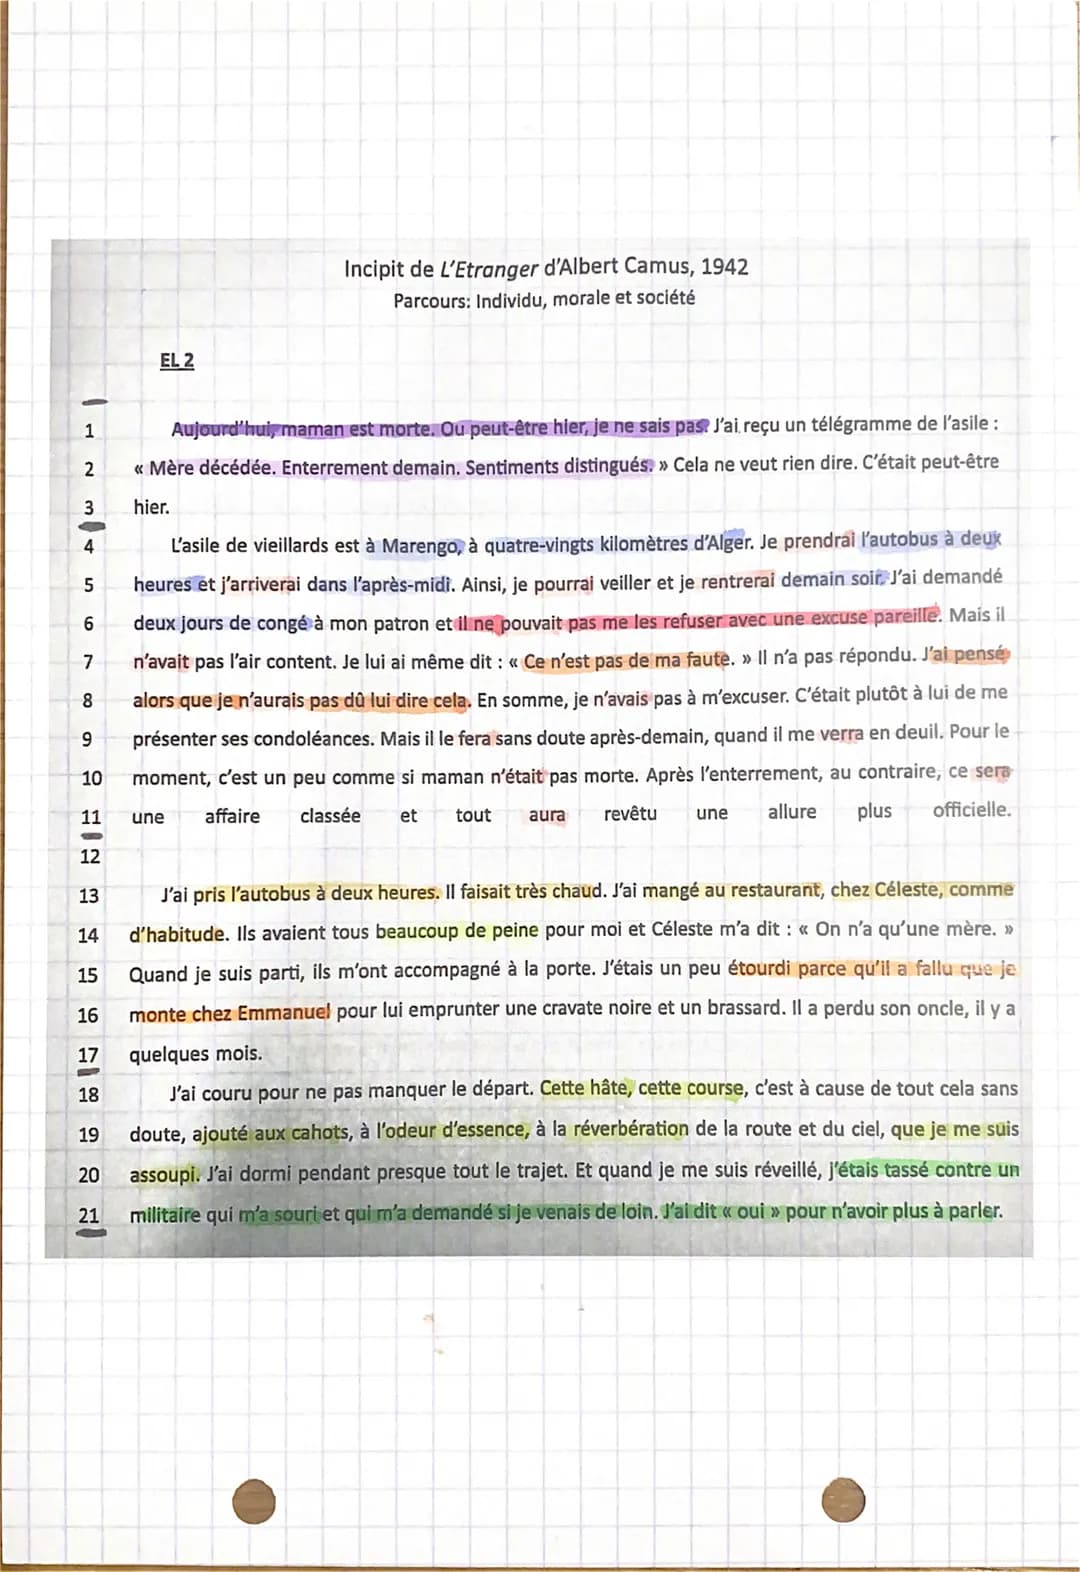 Incipit de L'Etranger d'Albert Camus, 1942
Parcours: Individu, morale et société
EL 2
1 Aujourd'hui, maman est morte. Ou peut-être hier, je ne sais pas. J'ai reçu un télégramme de l'asile :
2 « Mère décédée. Enterrement demain. Sentiments distingués. » Cela ne veut rien dire. C'était peut-être
3 hier.
4 L'asile de vieillards est à Marengo, à quatre-vingts kilomètres d'Alger. Je prendrai l'autobus à deux
5 heures et j'arriverai dans l'après-midi. Ainsi, je pourrai veiller et je rentrerai demain soir. J'ai demandé
6 deux jours de congé à mon patron et il ne pouvait pas me les refuser avec une excuse pareille. Mais il
7 n'avait pas l'air content. Je lui ai même dit : « Ce n'est pas de ma faute. » Il n'a pas répondu. J'ai pensé
8 alors que je n'aurais pas dû lui dire cela. En somme, je n'avais pas à m'excuser. C'était plutôt à lui de me
9 présenter ses condoléances. Mais il le fera sans doute après-demain, quand il me verra en deuil. Pour le
10 moment, c'est un peu comme si maman n'était pas morte. Après l'enterrement, au contraire, ce sera
11 une affaire classée et tout aura revêtu une allure plus officielle.
12
13 J'ai pris l'autobus à deux heures. Il faisait très chaud. J'ai mangé au restaurant, chez Céleste, comme
14 d'habitude. Ils avaient tous beaucoup de peine pour moi et Céleste m'a dit : « On n'a qu'une mère. »
15 Quand je suis parti, ils m'ont accompagné à la porte. J'étais un peu étourdi parce qu'il a fallu que je
16 monte chez Emmanuel pour lui emprunter une cravate noire et un brassard. Il a perdu son oncle, il y a
17 quelques mois.
18 J'ai couru pour ne pas manquer le départ. Cette hâte, cette course, c'est à cause de tout cela sans
19 doute, ajouté aux cahots, à l'odeur d'essence, à la réverbération de la route et du ciel, que je me suis
20 assoupi. J'ai dormi pendant presque tout le trajet. Et quand je me suis réveillé, j'étais tassé contre un
21 militaire qui m'a souri et qui m'a demandé si je venais de loin. J'ai dit « oui » pour n'avoir plus à parler.